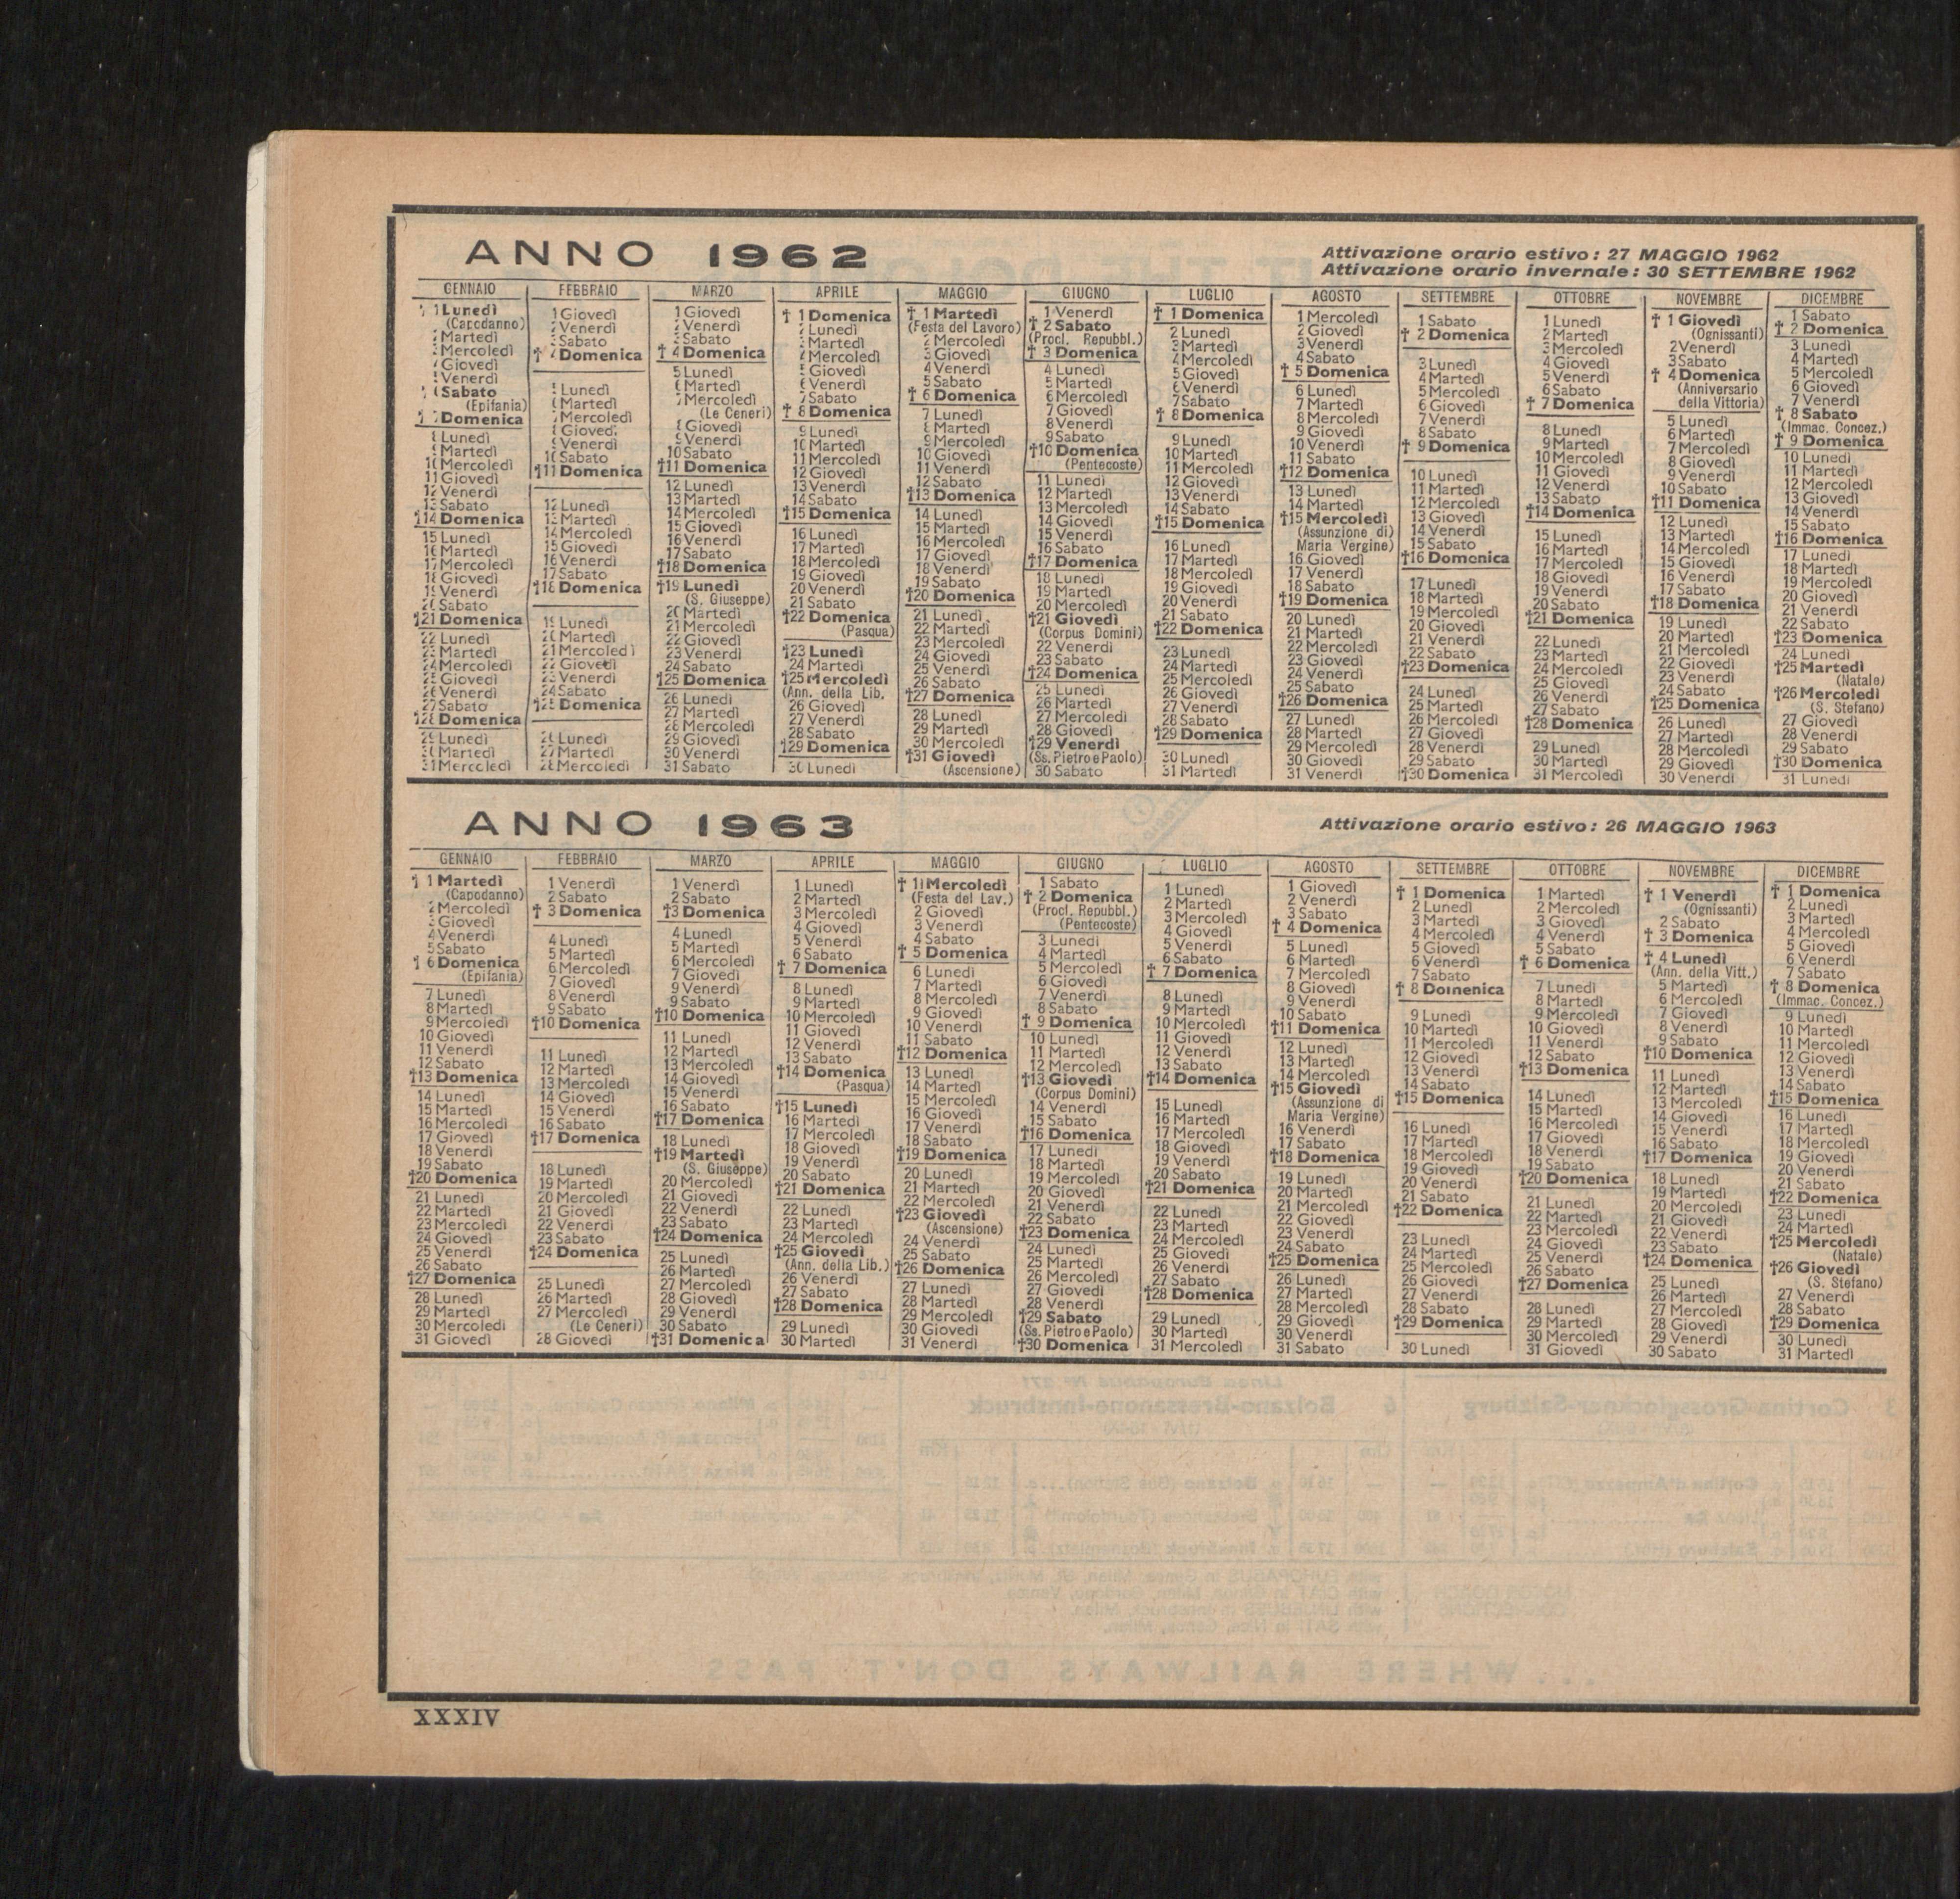 ANNO 1962
Attivazione orario estivo: 27 MAGGIO 1962
Attivazione orario invernale: 30 SETTEMBRE 1962
GENNAIO
† 1 Lunedì
(Capodanno)
2 Martedì
3 Mercoledì
4 Giovedì
5 Venerdì
† 6 Sabato
(Epifania)
† 7 Domenica
8 Lunedì
9 Martedì
10 Mercoledì
11 Giovedì
12 Venerdì
13 Sabato
†14 Domenica
15 Lunedì
16 Martedì
17 Mercoledì
18 Giovedì
19 Venerdì
20 Sabato
†21 Domenica
22 Lunedì
23 Martedì
24 Mercoledì
25 Giovedì
26 Venerdì
27 Sabato
†28 Domenica
29 Lunedì
30 Martedì
31 Mercoledì
FEBBRAIO
1 Giovedì
2 Venerdì
3 Sabato
† 4 Domenica
5 Lunedì
6 Martedì
7 Mercoledì
8 Giovedì
9 Venerdì
10 Sabato
†11 Domenica
12 Lunedì
13 Martedì
14 Mercoledì
15 Giovedì
16 Venerdì
17 Sabato
†18 Domenica
19 Lunedì
20 Martedì
21 Mercoledì
22 Giovedì
23 Venerdì
24 Sabato
†25 Domenica
26 Lunedì
27 Martedì
28 Mercoledì
MARZO
1 Giovedì
2 Venerdì
3 Sabato
† 4 Domenica
5 Lunedì
6 Martedì
7 Mercoledì
(Le Ceneri)
8 Giovedì
9 Venerdì
10 Sabato
†11 Domenica
12 Lunedì
13 Martedì
14 Mercoledì
15 Giovedì
16 Venerdì
17 Sabato
†18 Domenica
†19 Lunedì
(S. Giuseppe)
20 Martedì
21 Mercoledì
22 Giovedì
23 Venerdì
24 Sabato
†25 Domenica
26 Lunedì
27 Martedì
28 Mercoledì
29 Giovedì
30 Venerdì
31 Sabato
APRILE
† 1 Domenica
2 Lunedì
3 Martedì
4 Mercoledì
5 Giovedì
6 Venerdì
7 Sabato
† 8 Domenica
9 Lunedì
10 Martedì
11 Mercoledì
12 Giovedì
13 Venerdì
14 Sabato
†15 Domenica
16 Lunedì
17 Martedì
18 Mercoledì
19 Giovedì
20 Venerdì
21 Sabato
†22 Domenica
(Pasqua)
†23 Lunedì
24 Martedì
†25 Mercoledì
(Ann. della Lib.
26 Giovedì
27 Venerdì
28 Sabato
†29 Domenica
30 Lunedì
MAGGIO
† 1 Martedì
(Festa del Lavoro)
2 Mercoledì
3 Giovedì
4 Venerdì
5 Sabato
† 6 Domenica
7 Lunedì
8 Martedì
9 Mercoledì
10 Giovedì
11 Venerdì
12 Sabato
†13 Domenica
14 Lunedì
15 Martedì
16 Mercoledì
17 Giovedì
18 Venerdì
19 Sabato
†20 Domenica
21 Lunedì
22 Martedì
23 Mercoledì
24 Giovedì
25 Venerdì
26 Sabato
†27 Domenica
28 Lunedì
29 Martedì
30 Mercoledì
†31 Giovedì
(Ascensione)
GIUGNO
1 Venerdì
† 2 Sabato
(Procl. Repubbl.)
† 3 Domenica
4 Lunedì
5 Martedì
6 Mercoledì
7 Giovedì
8 Venerdì
9 Sabato
†10 Domenica
(Pentecoste)
11 Lunedì
12 Martedì
13 Mercoledì
14 Giovedì
15 Venerdì
16 Sabato
†17 Domenica
18 Lunedì
19 Martedì
20 Mercoledì
†21 Giovedì
(Corpus Domini)
22 Venerdì
23 Sabato
†24 Domenica
25 Lunedì
26 Martedì
27 Mercoledì
28 Giovedì
†29 Venerdì
(Ss. Pietro e Paolo)
30 Sabato
LUGLIO
† 1 Domenica
2 Lunedì
3 Martedì
4 Mercoledì
5 Giovedì
6 Venerdì
7 Sabato
† 8 Domenica
9 Lunedì
10 Martedì
11 Mercoledì
12 Giovedì
13 Venerdì
14 Sabato
†15 Domenica
16 Lunedì
17 Martedì
18 Mercoledì
19 Giovedì
20 Venerdì
21 Sabato
†22 Domenica
23 Lunedì
24 Martedì
25 Mercoledì
26 Giovedì
27 Venerdì
28 Sabato
†29 Domenica
30 Lunedì
31 Martedì
AGOSTO
1 Mercoledì
2 Giovedì
3 Venerdì
4 Sabato
† 5 Domenica
6 Lunedì
7 Martedì
8 Mercoledì
9 Giovedì
10 Venerdì
11 Sabato
†12 Domenica
13 Lunedì
14 Martedì
†15 Mercoledì
(Assunzione di
Maria Vergine)
16 Giovedì
17 Venerdì
18 Sabato
†19 Domenica
20 Lunedì
21 Martedì
22 Mercoledì
23 Giovedì
24 Venerdì
25 Sabato
†26 Domenica
27 Lunedì
28 Martedì
29 Mercoledì
30 Giovedì
31 Venerdì
SETTEMBRE
1 Sabato
† 2 Domenica
3 Lunedì
4 Martedì
5 Mercoledì
6 Giovedì
7 Venerdì
8 Sabato
† 9 Domenica
10 Lunedì
11 Martedì
12 Mercoledì
13 Giovedì
14 Venerdì
15 Sabato
†16 Domenica
17 Lunedì
18 Martedì
19 Mercoledì
20 Giovedì
21 Venerdì
22 Sabato
†23 Domenica
24 Lunedì
25 Martedì
26 Mercoledì
27 Giovedì
28 Venerdì
29 Sabato
†30 Domenica
OTTOBRE
1 Lunedì
2 Martedì
3 Mercoledì
4 Giovedì
5 Venerdì
6 Sabato
† 7 Domenica
8 Lunedì
9 Martedì
10 Mercoledì
11 Giovedì
12 Venerdì
13 Sabato
†14 Domenica
15 Lunedì
16 Martedì
17 Mercoledì
18 Giovedì
19 Venerdì
20 Sabato
†21 Domenica
22 Lunedì
23 Martedì
24 Mercoledì
25 Giovedì
26 Venerdì
27 Sabato
†28 Domenica
29 Lunedì
30 Martedì
31 Mercoledì
NOVEMBRE
† 1 Giovedì
(Ognissanti)
2 Venerdì
3 Sabato
† 4 Domenica
(Anniversario
della Vittoria)
5 Lunedì
6 Martedì
7 Mercoledì
8 Giovedì
9 Venerdì
10 Sabato
†11 Domenica
12 Lunedì
13 Martedì
14 Mercoledì
15 Giovedì
16 Venerdì
17 Sabato
†18 Domenica
19 Lunedì
20 Martedì
21 Mercoledì
22 Giovedì
23 Venerdì
24 Sabato
†25 Domenica
26 Lunedì
27 Martedì
28 Mercoledì
29 Giovedì
30 Venerdì
DICEMBRE
1 Sabato
† 2 Domenica
3 Lunedì
4 Martedì
5 Mercoledì
6 Giovedì
7 Venerdì
† 8 Sabato
(Immac. Concez.)
† 9 Domenica
10 Lunedì
11 Martedì
12 Mercoledì
13 Giovedì
14 Venerdì
15 Sabato
†16 Domenica
17 Lunedì
18 Martedì
19 Mercoledì
20 Giovedì
21 Venerdì
22 Sabato
†23 Domenica
24 Lunedì
†25 Martedì
(Natale)
†26 Mercoledì
(S. Stefano)
27 Giovedì
28 Venerdì
29 Sabato
†30 Domenica
31 Lunedì
ANNO 1963
Attivazione orario estivo: 26 MAGGIO 1963
GENNAIO
† 1 Martedì
(Capodanno)
2 Mercoledì
3 Giovedì
4 Venerdì
5 Sabato
† 6 Domenica
(Epifania)
7 Lunedì
8 Martedì
9 Mercoledì
10 Giovedì
11 Venerdì
12 Sabato
†13 Domenica
14 Lunedì
15 Martedì
16 Mercoledì
17 Giovedì
18 Venerdì
19 Sabato
†20 Domenica
21 Lunedì
22 Martedì
23 Mercoledì
24 Giovedì
25 Venerdì
26 Sabato
†27 Domenica
28 Lunedì
29 Martedì
30 Mercoledì
31 Giovedì
FEBBRAIO
1 Venerdì
2 Sabato
† 3 Domenica
4 Lunedì
5 Martedì
6 Mercoledì
7 Giovedì
8 Venerdì
9 Sabato
†10 Domenica
11 Lunedì
12 Martedì
13 Mercoledì
14 Giovedì
15 Venerdì
16 Sabato
†17 Domenica
18 Lunedì
19 Martedì
20 Mercoledì
21 Giovedì
22 Venerdì
23 Sabato
†24 Domenica
25 Lunedì
26 Martedì
27 Mercoledì
(Le Ceneri)
28 Giovedì
MARZO
1 Venerdì
2 Sabato
†3 Domenica
4 Lunedì
5 Martedì
6 Mercoledì
7 Giovedì
9 Venerdì
9 Sabato
†10 Domenica
11 Lunedì
12 Martedì
13 Mercoledì
14 Giovedì
15 Venerdì
16 Sabato
†17 Domenica
18 Lunedì
†19 Martedì
(S. Giuseppe)
20 Mercoledì
21 Giovedì
22 Venerdì
23 Sabato
†24 Domenica
25 Lunedì
26 Martedì
27 Mercoledì
28 Giovedì
29 Venerdì
30 Sabato
†31 Domenica
APRILE
1 Lunedì
2 Martedì
3 Mercoledì
4 Giovedì
5 Venerdì
6 Sabato
† 7 Domenica
8 Lunedì
9 Martedì
10 Mercoledì
11 Giovedì
12 Venerdì
13 Sabato
†14 Domenica
(Pasqua)
†15 Lunedì
16 Martedì
17 Mercoledì
18 Giovedì
19 Venerdì
20 Sabato
†21 Domenica
22 Lunedì
23 Martedì
24 Mercoledì
†25 Giovedì
(Ann. della Lib.)
26 Venerdì
27 Sabato
†28 Domenica
29 Lunedì
30 Martedì
MAGGIO
† 1 Mercoledì
(Festa del Lav.)
2 Giovedì
3 Venerdì
4 Sabato
† 5 Domenica
6 Lunedì
7 Martedì
8 Mercoledì
9 Giovedì
10 Venerdì
11 Sabato
†12 Domenica
13 Lunedì
14 Martedì
15 Mercoledì
16 Giovedì
17 Venerdì
18 Sabato
†19 Domenica
20 Lunedì
21 Martedì
22 Mercoledì
†23 Giovedì
(Ascensione)
24 Venerdì
25 Sabato
†26 Domenica
27 Lunedì
28 Martedì
29 Mercoledì
30 Giovedì
31 Venerdì
GIUGNO
1 Sabato
† 2 Domenica
(Procl. Repubbl.)
(Pentecoste)
3 Lunedì
4 Martedì
5 Mercoledì
6 Giovedì
7 Venerdì
8 Sabato
† 9 Domenica
10 Lunedì
11 Martedì
12 Mercoledì
†13 Giovedì
(Corpus Domini)
14 Venerdì
15 Sabato
†16 Domenica
17 Lunedì
18 Martedì
19 Mercoledì
20 Giovedì
21 Venerdì
22 Sabato
†23 Domenica
24 Lunedì
25 Martedì
26 Mercoledì
27 Giovedì
28 Venerdì
†29 Sabato
(Ss. Pietro e Paolo)
†30 Domenica
LUGLIO
1 Lunedì
2 Martedì
3 Mercoledì
4 Giovedì
5 Venerdì
6 Sabato
† 7 Domenica
8 Lunedì
9 Martedì
10 Mercoledì
11 Giovedì
12 Venerdì
13 Sabato
†14 Domenica
15 Lunedì
16 Martedì
17 Mercoledì
18 Giovedì
19 Venerdì
20 Sabato
†21 Domenica
22 Lunedì
23 Martedì
24 Mercoledì
25 Giovedì
26 Venerdì
27 Sabato
†28 Domenica
29 Lunedì
30 Martedì
31 Mercoledì
AGOSTO
1 Giovedì
2 Venerdì
3 Sabato
† 4 Domenica
5 Lunedì
6 Martedì
7 Mercoledì
8 Giovedì
9 Venerdì
10 Sabato
†11 Domenica
12 Lunedì
13 Martedì
14 Mercoledì
†15 Giovedì
(Assunzione di
Maria Vergine)
16 Venerdì
17 Sabato
†18 Domenica
19 Lunedì
20 Martedì
21 Mercoledì
22 Giovedì
23 Venerdì
24 Sabato
†25 Domenica
26 Lunedì
27 Martedì
28 Mercoledì
29 Giovedì
30 Venerdì
31 Sabato
SETTEMBRE
† 1 Domenica
2 Lunedì
3 Martedì
4 Mercoledì
5 Giovedì
6 Venerdì
7 Sabato
† 8 Domenica
9 Lunedì
10 Martedì
11 Mercoledì
12 Giovedì
13 Venerdì
14 Sabato
†15 Domenica
16 Lunedì
17 Martedì
18 Mercoledì
19 Giovedì
20 Venerdì
21 Sabato
†22 Domenica
23 Lunedì
24 Martedì
25 Mercoledì
26 Giovedì
27 Venerdì
28 Sabato
†29 Domenica
30 Lunedì
OTTOBRE
1 Martedì
2 Mercoledì
3 Giovedì
4 Venerdì
5 Sabato
† 6 Domenica
7 Lunedì
8 Martedì
9 Mercoledì
10 Giovedì
11 Venerdì
12 Sabato
†13 Domenica
14 Lunedì
15 Martedì
16 Mercoledì
17 Giovedì
18 Venerdì
19 Sabato
†20 Domenica
21 Lunedì
22 Martedì
23 Mercoledì
24 Giovedì
25 Venerdì
26 Sabato
†27 Domenica
28 Lunedì
29 Martedì
30 Mercoledì
31 Giovedì
NOVEMBRE
† 1 Venerdì
(Ognissanti)
2 Sabato
† 3 Domenica
† 4 Lunedì
(Ann. della Vitt.)
5 Martedì
6 Mercoledì
7 Giovedì
8 Venerdì
9 Sabato
†10 Domenica
11 Lunedì
12 Martedì
13 Mercoledì
14 Giovedì
15 Venerdì
16 Sabato
†17 Domenica
18 Lunedì
19 Martedì
20 Mercoledì
21 Giovedì
22 Venerdì
23 Sabato
†24 Domenica
25 Lunedì
26 Martedì
27 Mercoledì
28 Giovedì
29 Venerdì
30 Sabato
DICEMBRE
† 1 Domenica
2 Lunedì
3 Martedì
4 Mercoledì
5 Giovedì
6 Venerdì
7 Sabato
† 8 Domenica
(Immac. Concez.)
9 Lunedì
10 Martedì
11 Mercoledì
12 Giovedì
13 Venerdì
14 Sabato
†15 Domenica
16 Lunedì
17 Martedì
18 Mercoledì
19 Giovedì
20 Venerdì
21 Sabato
†22 Domenica
23 Lunedì
24 Martedì
†25 Mercoledì
(Natale)
†26 Giovedì
(S. Stefano)
27 Venerdì
28 Sabato
†29 Domenica
30 Lunedì
31 Martedì
XXXIV